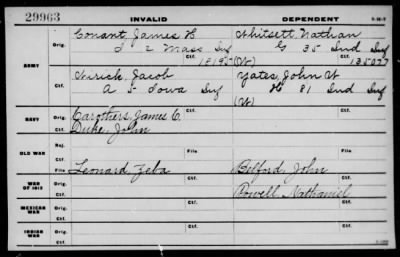 29963
INVALID
DEPENDENT
ARMY
Orig.
Conant, James H
Whitsett, Nathan
I 2 Mass Inf
G 35 Ind Inf
Ctf.
Ctf.
(W)
135077
Orig.
Hirick, Jacob
Yates, John W
A 5 Iowa Inf
H 81 Ind Inf
Ctf.
Ctf.
(W)
NAVY
Orig.
Carothers, James C.
Duke, John
Ctf.
OLD WAR
Rej.
Ctf.
File
Leonard, Zeba
Bilford, John
WAR OF 1812
Orig.
Powell, Nathaniel
Ctf.
MEXICAN WAR
Orig.
Ctf.
INDIAN WAR
Orig.
Ctf.